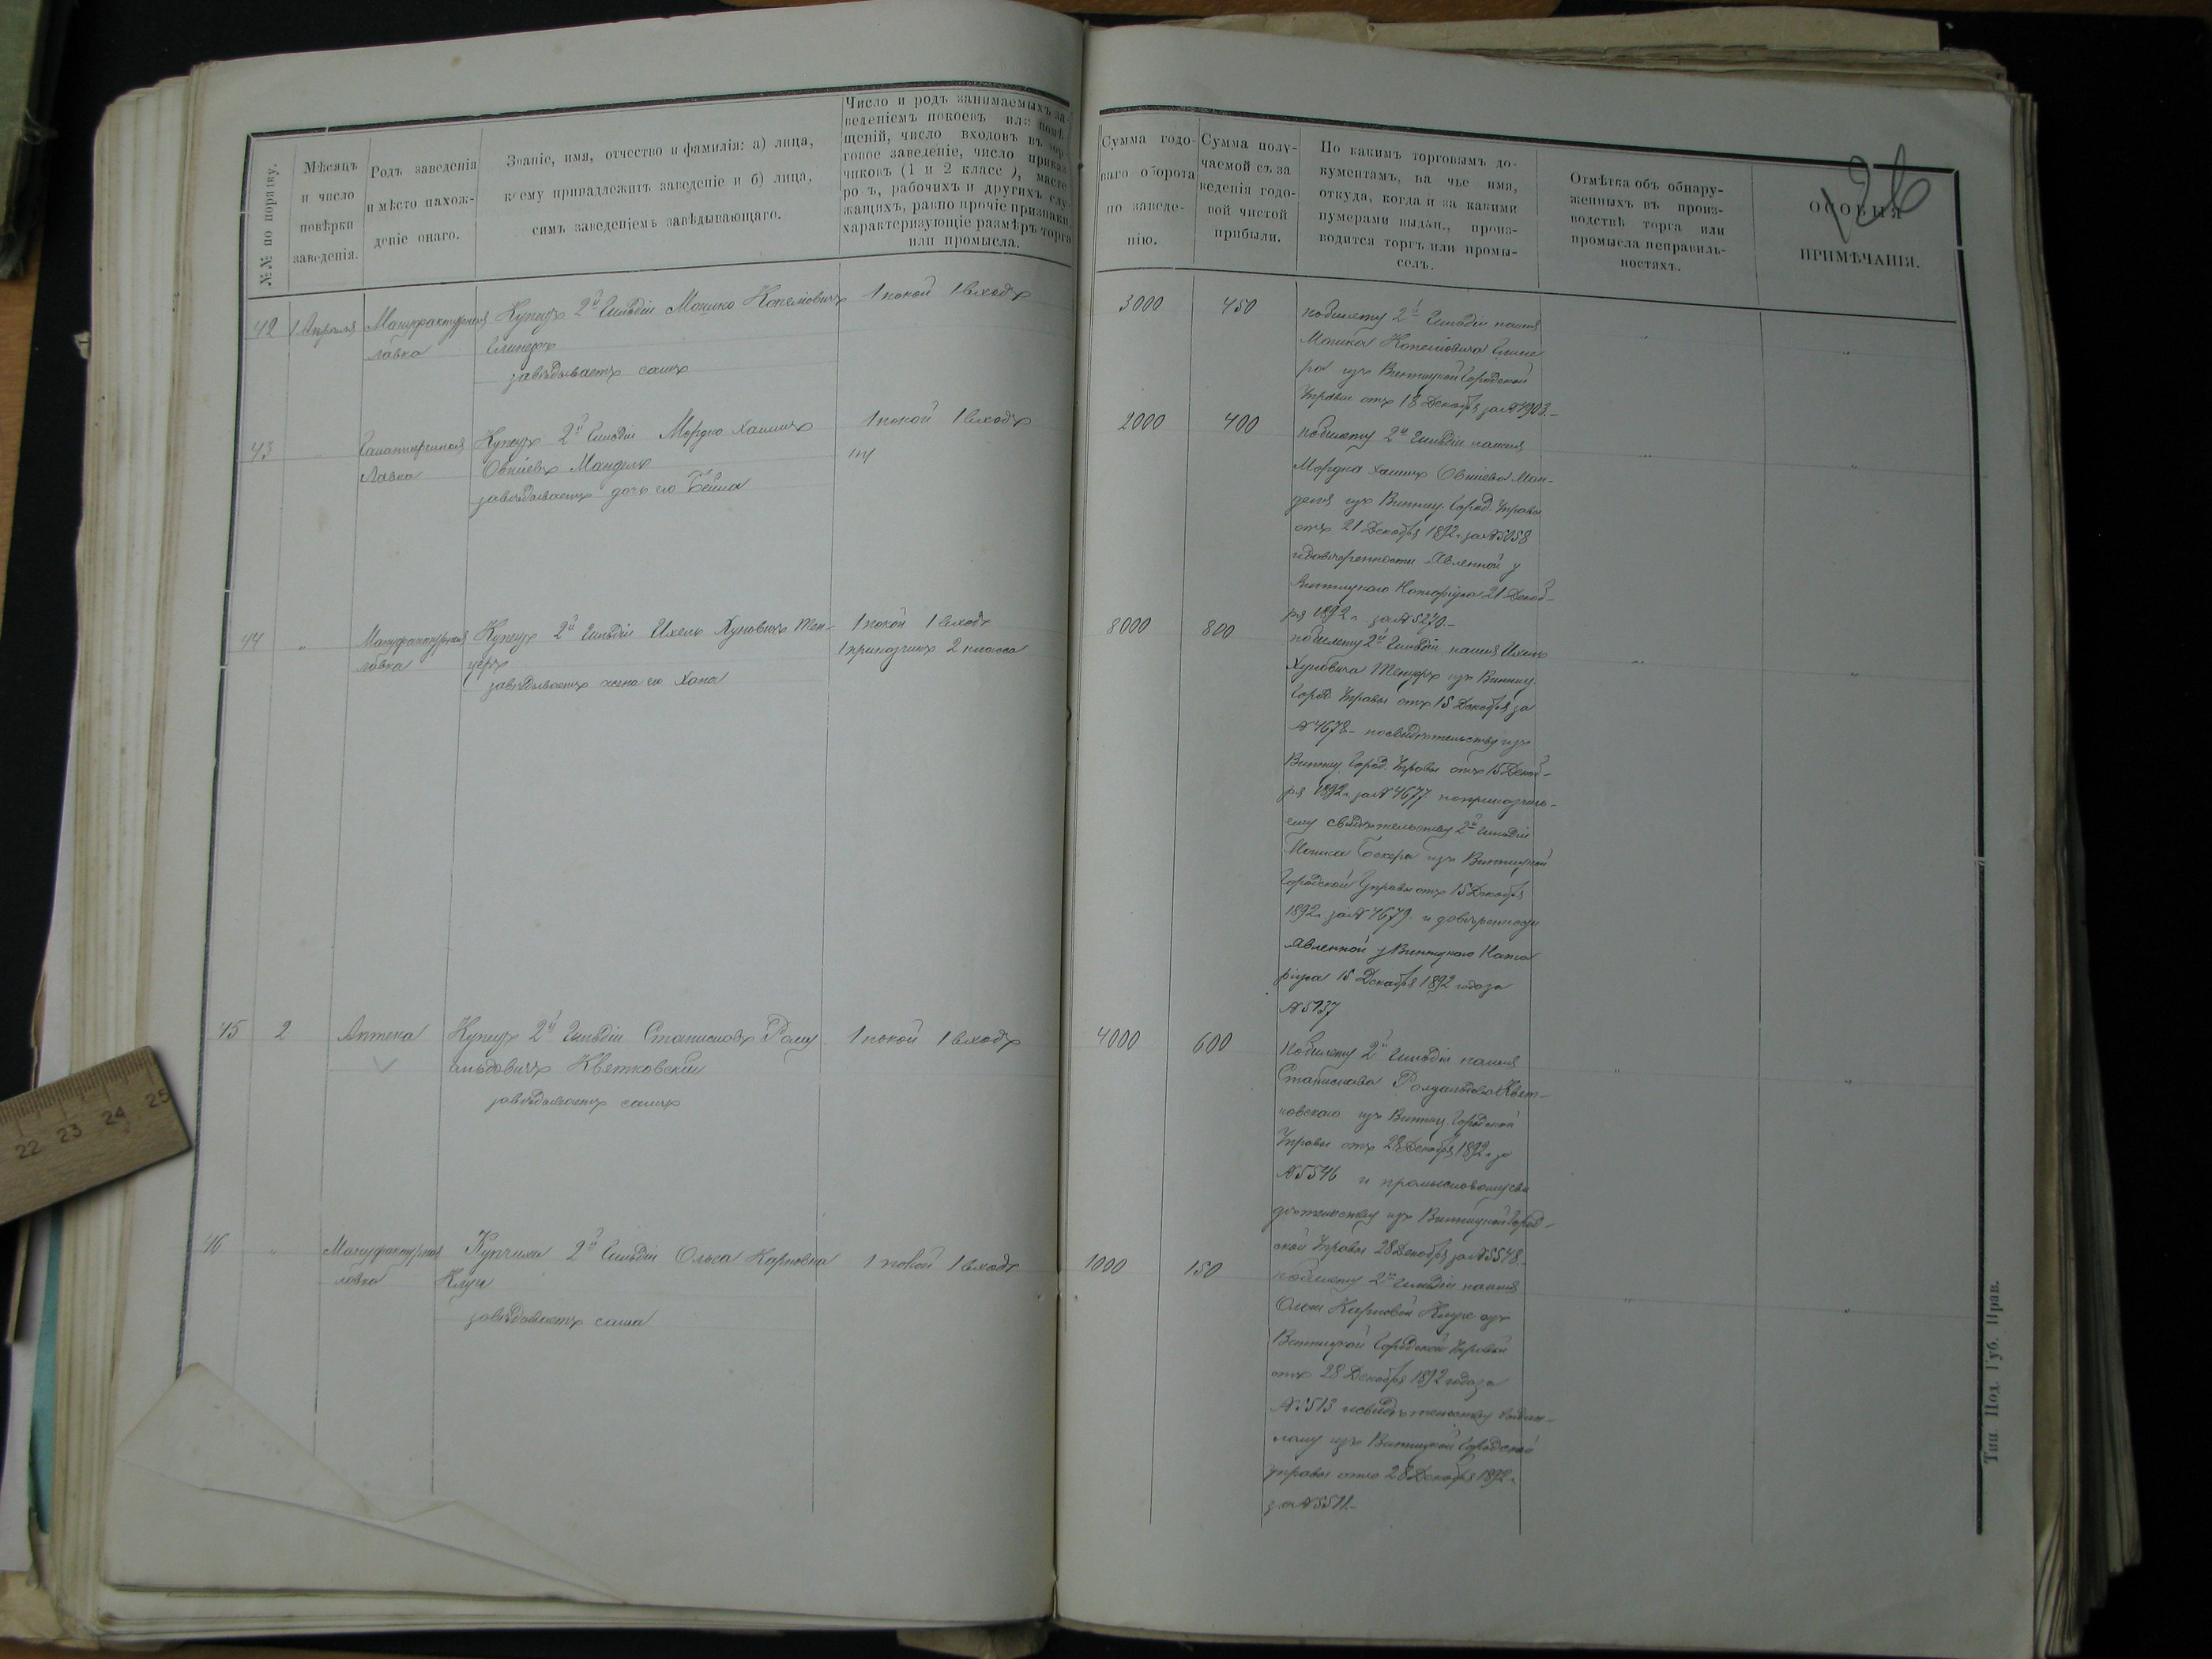 №№ по порядку.
Мѣсяцъ
и число
повѣрки
заведенія.
Родъ заведенія
и мѣсто нахож-
деніе онаго.
Званіе, имя, отчество и фамилія: а) лица,
коему принадлежитъ заведеніе и б) лица,
симъ заведеніемъ завѣдывающаго.
Число и родъ занимаемыхъ за-
веденіемъ покоевъ или помѣ-
щеній, число входовъ въ тор-
говое заведеніе, число приказ-
чиковъ (1 и 2 класса), масте-
ровъ, рабочихъ и другихъ слу-
жащихъ, равно прочіе признаки,
характеризующіе размѣръ торга
или промысла.
Сумма годо-
ваго оборота
по заведе-
нію.
Сумма полу-
чаемой съ за
веденія годо-
вой чистой
прибыли.
По какимъ торговымъ до-
кументамъ, на чье имя,
откуда, когда и за какими
нумерами выдан., произ-
водится торгъ или промы-
селъ.
Отмѣтка объ обнару-
женныхъ въ произ-
водствѣ торга или
промысла неправиль-
ностяхъ.
ОСОБЫЯ
ПРИМѢЧАНІЯ.
42
1 Апрѣля
Мануфактурная
лавка
Купецъ 2й Гильдіи Мошко Копелювичъ
завѣдываетъ самъ
1 покой 1 входъ
3000
450
по билету 2й Гильдіи на имя
Мошка Копелювича
ра изъ Винницкой Городской
Управы отъ 18 Декабря за № 4903.-
43
Галантерейная
Лавка
Купецъ 2й Гильдіи Мордко Хаимъ
Овшіевъ Мандель
завѣдываетъ дочь его Бейла
1 покой 1 входъ
2000
400
по билету 2й Гильдіи на имя
Мордка Хаима Овшіева Ман-
деля изъ Винниц. Город. Управы
отъ 21 Декабря 1892 г. за № 5058
и довѣренности явленной у
Винницкаго Нотаріуса 21 Декаб-
ря 1892 г. за № 5270.-
44
Мануфактурная
лавка
Купецъ 2й Гильдіи Ихель Хуновичъ Тен-
церъ
завѣдываетъ жена его Хана
1 покой 1 входъ
1 приказчикъ 2 класса
8000
800
по билету 2й Гильдіи на имя Ихеля
Хуновича Тенцеръ изъ Винниц.
Город. Управы отъ 15 Декабря за
№ 4678 - по свидѣтельству изъ
Винниц. Город. Управы отъ 15 Декаб-
ря 1892 г. за № 4677 по приказчичь-
ему свидѣтельству 2й Гильдіи
Мошка изъ Винницкой
Городской Управы отъ 15 Декабря
1892 г. за № 4679 и довѣренности
явленной у Винницкаго Нота
ріуса 15 Декабря 1892 года за
№ 5137
45
2
Аптека
Купецъ 2й Гильдіи Станиславъ Рому
альдовичъ Квятковскій
завѣдываетъ самъ
1 покой 1 входъ
4000
600
по билету 2й Гильдіи на имя
Станислава Ромуальдова Квят-
ковскаго изъ Винниц. Городской
Управы отъ 28 Декабря 1892 г. за
№ 5546 и промысловому сви
дѣтельству изъ Винницкой Город-
ской Управы 28 Декабря за № 5548.-
46
Мануфактурная
лавка
Купчиха 2й Гильдіи Ольга Карповна
завѣдываетъ сама
1 покой 1 входъ
1000
150
по билету 2й Гильдіи на имя
Ольги Карповой изъ
Винницкой Городской Управы
отъ 28 Декабря 1892 года за
и свидѣтельству выдан-
ному изъ Винницкой Городской
управы отъ 28 Декабря 1892 г.
за № 5511.-
Тип. Под. Губ. Прав.
22 23 24 25